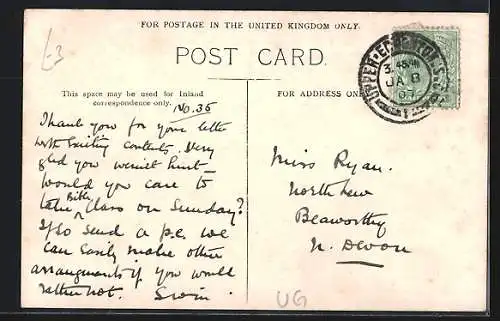 FOR POSTAGE IN THE UNITED KINGDOM ONLY.
£3
POST CARD.
This space may be used for Inland
correspondence only.
FOR ADDRESS ONLY
No. 36
Thank you for your letter
with existing contents. Very
glad you weren't hurt_
would you care to
take Bible class on Sunday?
If so send a p.c. we
can easily make other
arrangements if you would
rather not.
Miss Ryan.
North Lew
Beaworthy
N. Devon
UPPER
JA 8
07
UG